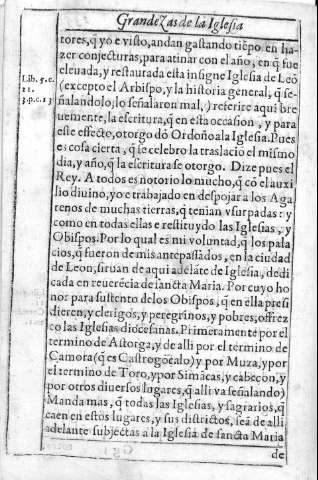 Grandezas de la Iglesia
tores, q̃ yo e visto, andan gastando tiẽpo en ha-
zer conjecturas, para atinar con el año, en q̃ fue
eleuada, y restaurada esta insigne Iglesia de Leõ
(excepto el Arbispo, y la historia general, q̃ se-
ñalandolo, lo señalaron mal,) referire aqui bre
uemente, la escritura, q̃ en esta occasion, y para
este effecto, otorgo dõ Ordoño a la Iglesia. Pues
es cosa cierta, q̃ se celebro la traslaciõ el mismo
dia, y año, q̃ la escritura se otorgo. Dize pues el
Rey. A todos es notorio lo mucho, q̃ cõ el auxi
lio diuino, yo e trabajado en despojar a los Aga
renos de muchas tierras, q̃ tenian vsurpadas: y
como en todas ellas e restituydo las Iglesias, y
Obispos. Por lo qual es mi voluntad, q̃ los pala
cios, q̃ fueron de mis antepassados, en la ciudad
de Leon, siruan de aqui adelãte de Iglesia, dedi
cada en reuerẽcia de sancta Maria. Por cuyo ho
nor para sustento de los Obispos, q̃ en ella presi
dieren, y clerigos, y peregrinos, y pobres, offrez
co las Iglesias diocesanas. Primeramente por el
termino de Astorga, y de alli por el termino de
Çamora (q̃ es Castrogõçalo) y por Muza, y por
el termino de Toro, y por Simãcas, y cabeçon, y
por otros diuersos lugares, q̃ alli va señalando)
Manda mas, q̃ todas las Iglesias, y sagrarios, q̃
caen en estos lugares, y sus districtos, seã de alli
adelante subjectas a la Iglesia de sancta Maria
de
Lib. 5. c.
11.
3. p. c. 13